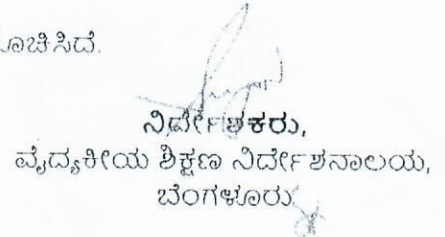 ನಿರ್ದೇಶಕರು,
ವೈದ್ಯಕೀಯ ಶಿಕ್ಷಣ ನಿರ್ದೇಶನಾಲಯ,
ಬೆಂಗಳೂರು